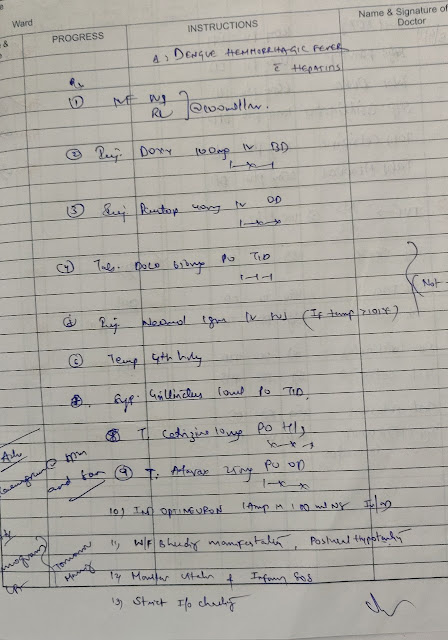 Ward
PROGRESS
INSTRUCTIONS
Name & Signature of
Doctor
Δ: DENGUE HEMORRHAGIC FEVER
c̄ HEPATITIS
Rx
① IVF NS
RL } @100ml/hr.
② Inj. Doxy 100mg IV BD
1-x-1
③ Inj Pantop 40mg IV OD
1-x-x
④ Tab. Dolo 650mg PO TID
1-1-1
⑤ Inj Neomol 1gm IV (If temp >101°F)
(Not
⑥ Temp 4th hrly
⑦. Syp. 10ml PO TID.
⑧ T. Cetrizine 10mg PO H/S
x-x-1
⑨ T. Atarax 25mg PO OD
1-x-x
10) Inj OPTINEURON 1Amp in 100ml NS IV/OD
11) W/F Bleeding manifestation, Postural Hypotension
12) Monitor Vitals & Inform SOS
13) Strict I/o charting